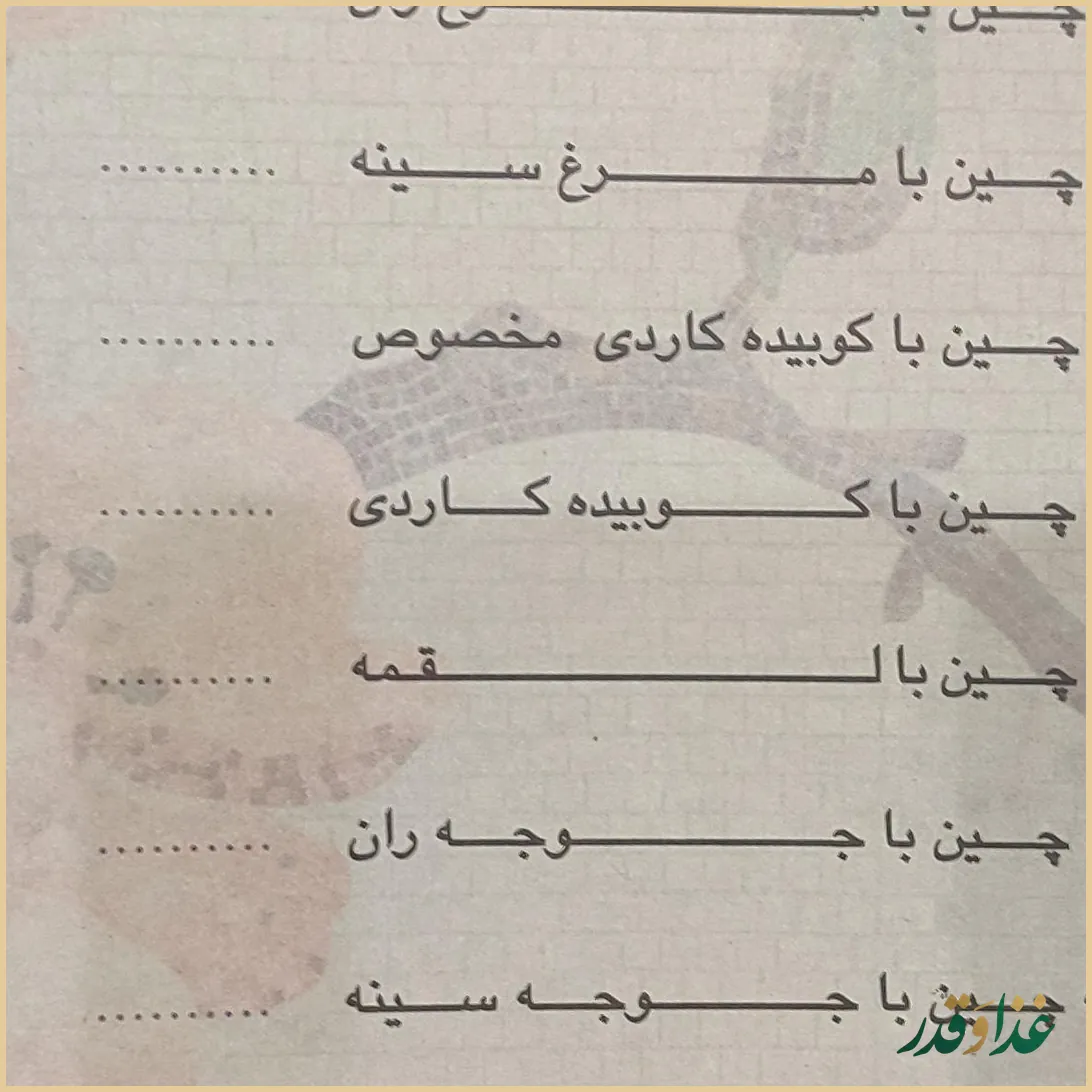 چین با مرغ ران
چین با مرغ سینه ..........
چین با کوبیده کاردی مخصوص ..........
چین با کوبیده کاردی ..........
چین با لقمه ..........
چین با جوجه ران ..........
چین با جوجه سینه ..........
غذا و قدر